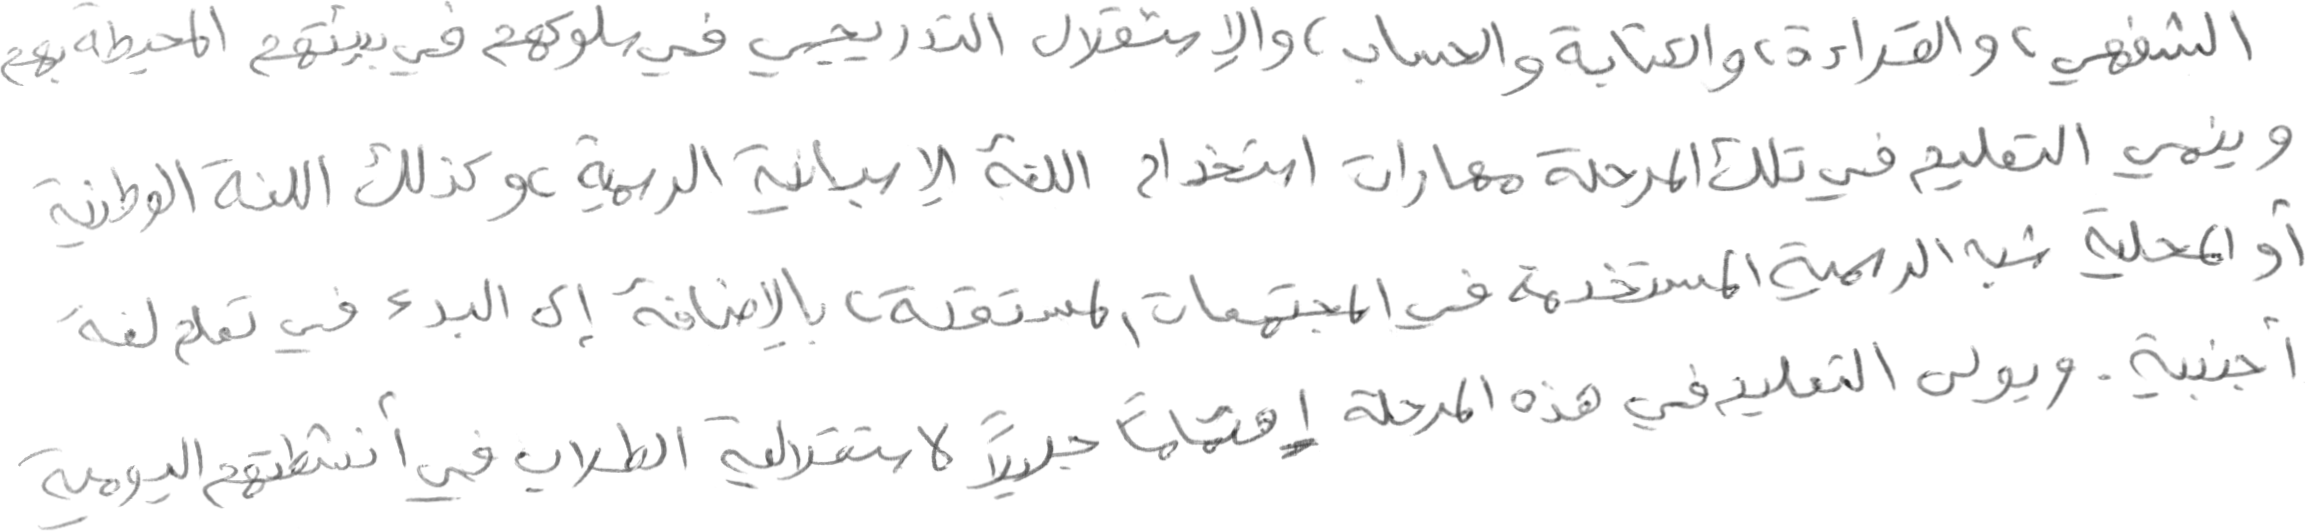 الشفهي، والقراءة، والكتابة والحساب، والإستقلال التدريجي في سلوكهم في بيئتهم المحيطة بهم
وينمي التعليم في تلك المرحلة مهارات استخدام اللغة الإسبانية الرسمية، وكذلك اللغة الوطنية
أو المحلية شبه الرسمية المستخدمة في المجتمعات المستقلة، بالإضافة إلى البدء في تعلم لغة
أجنبية. ويولى التعليم في هذه المرحلة إهتمامًا جليلًا لاستقلالية الطلاب في أنشطتهم اليومية